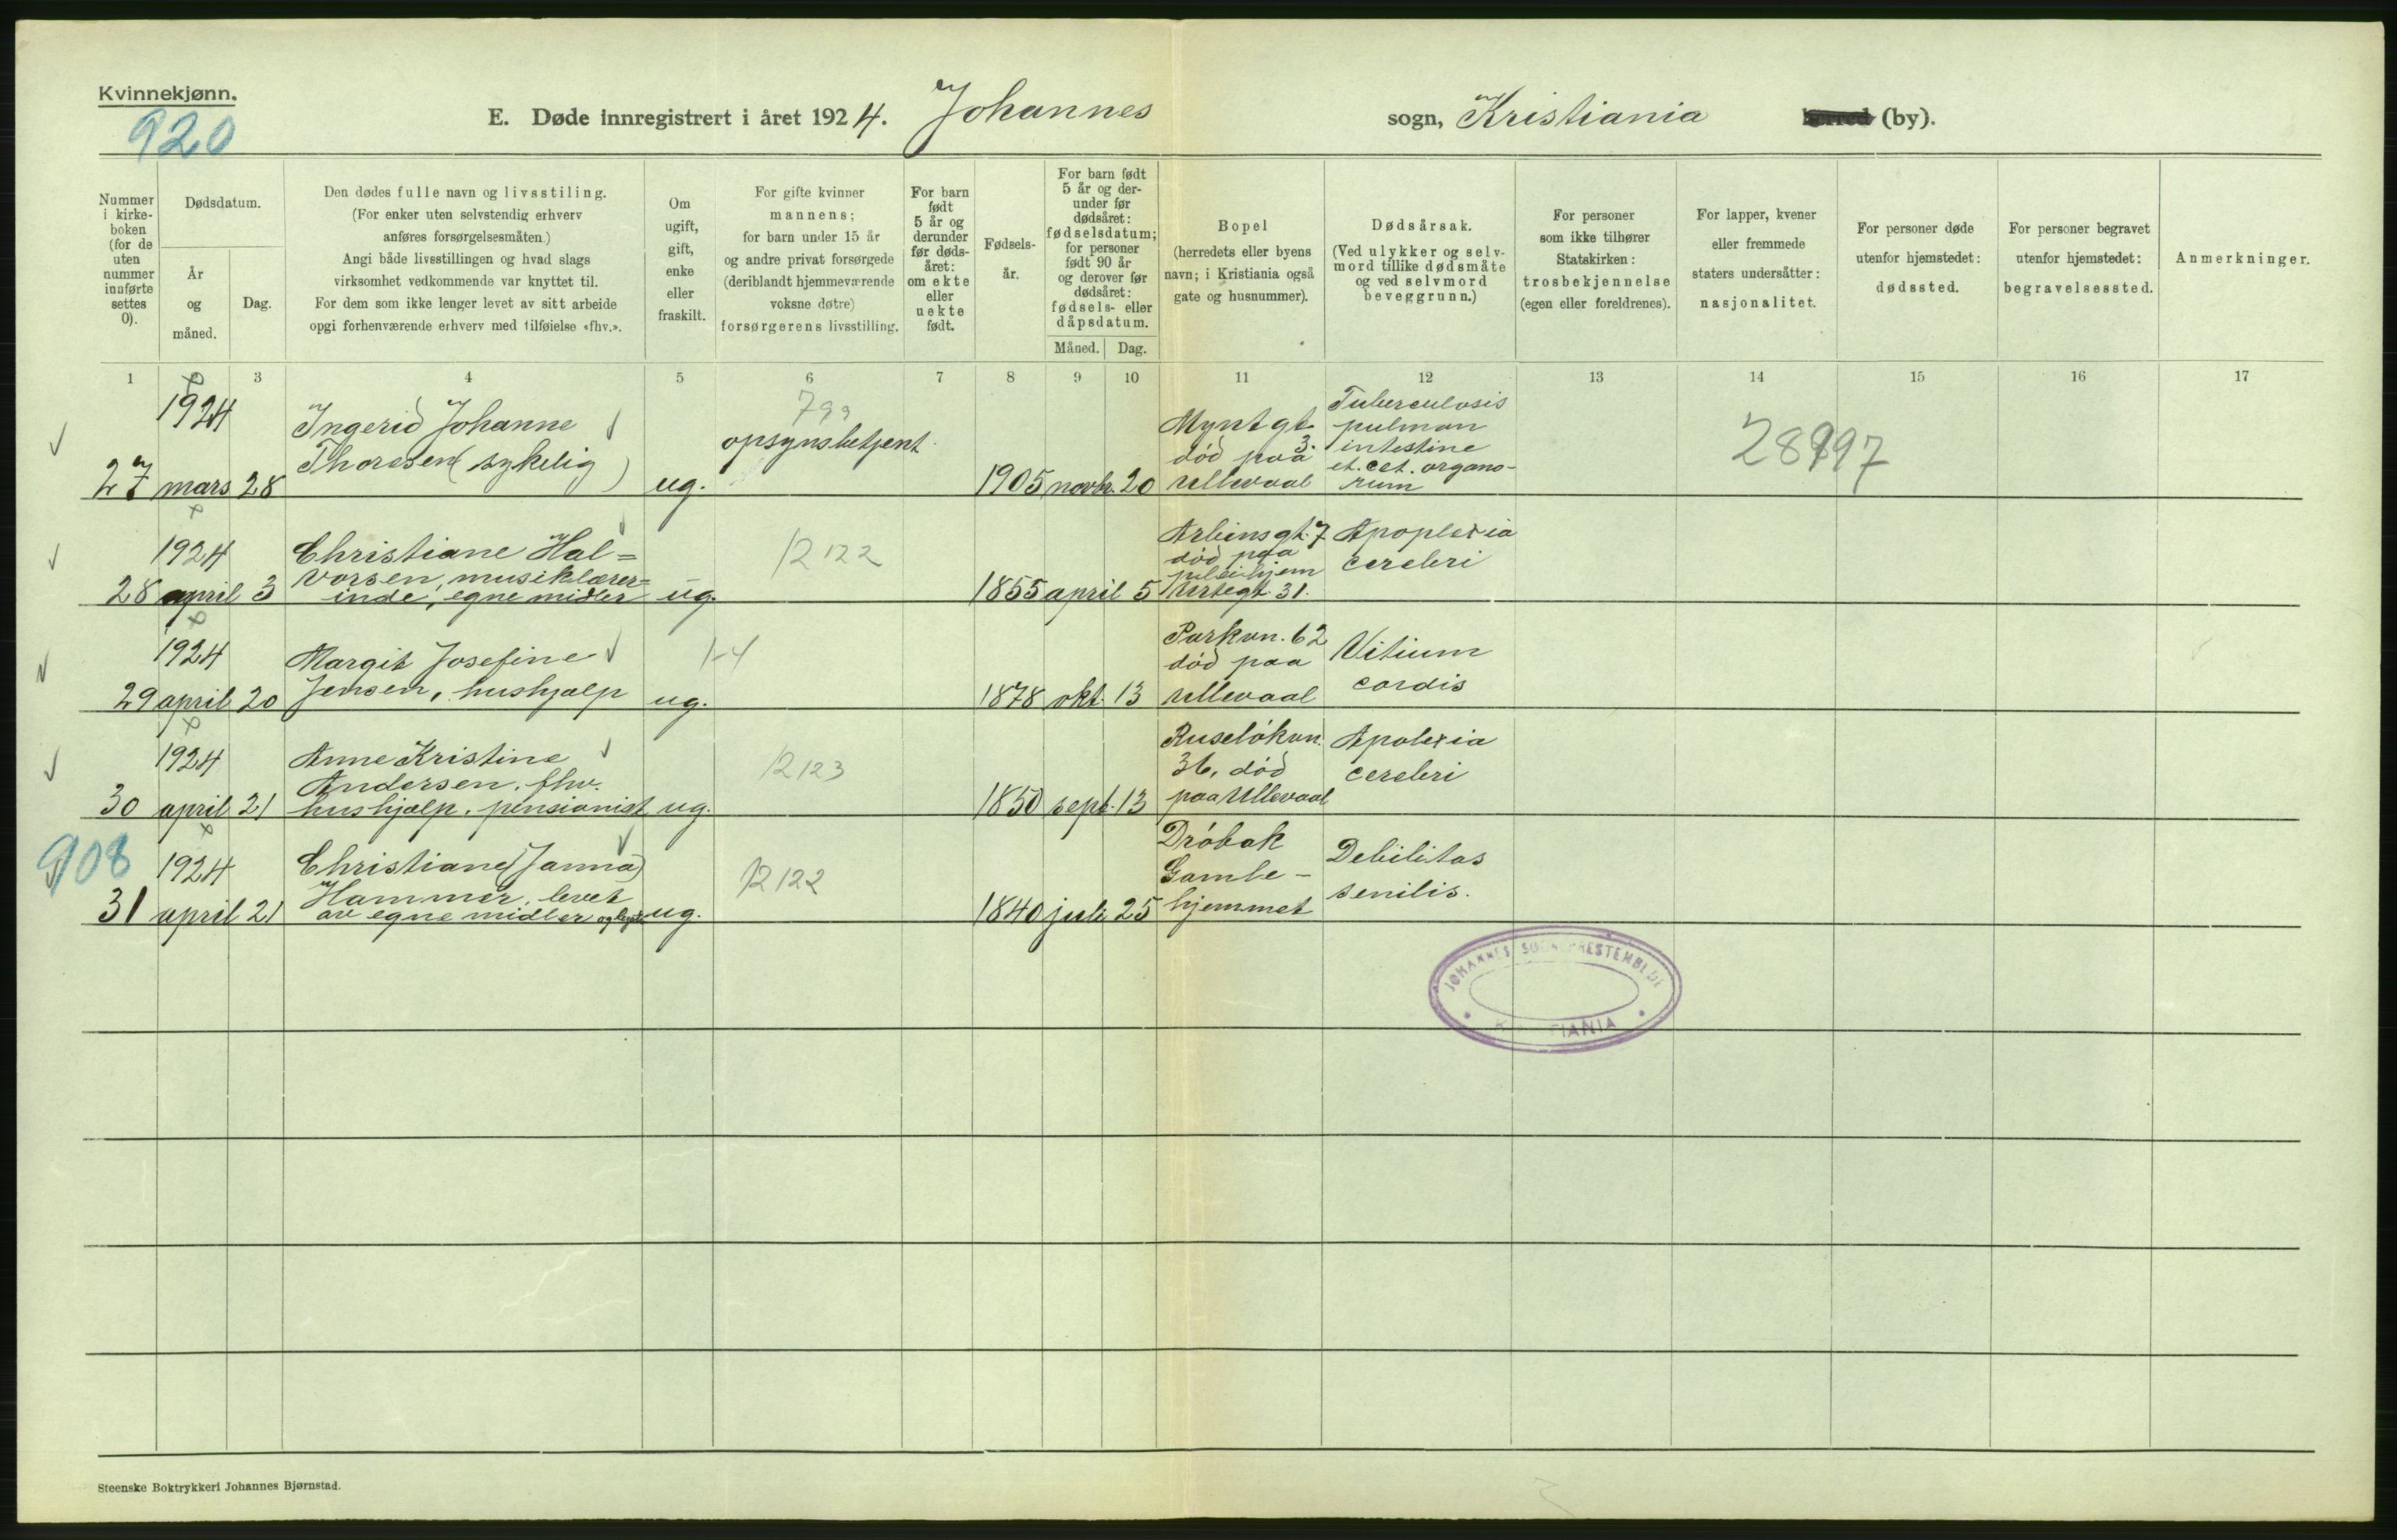 Kvinnekjønn.
920
E. Døde innregistrert i året 1924. Johannes sogn, Kristiania herred (by).
Nummer i kirke- boken (for de uten nummer innførte settes 0).
Dødsdatum.
År og måned.
Dag.
Den dødes fulle navn og livsstiling.
(For enker uten selvstendig erhverv
anføres forsørgelsesmåten.)
Angi både livsstillingen og hvad slags
virksomhet vedkommende var knyttet til.
For dem som ikke lenger levet av sitt arbeide
opgi forhenværende erhverv med tilføielse «fhv.».
Om ugift, gift, enke eller fraskilt.
For gifte kvinner
mannens;
for barn under 15 år
og andre privat forsørgede
(deriblandt hjemmeværende
voksne døtre)
forsørgerens livsstilling.
For barn født 5 år og derunder før døds- året: om ekte eller uekte født.
Fødsels- år.
For barn født 5 år og der- under før dødsåret: fødselsdatum; for personer født 90 år og derover før dødsåret: fødsels- eller dåpsdatum.
Måned. Dag.
Bopel
(herredets eller byens
navn; i Kristiania også
gate og husnummer).
Dødsårsak.
(Ved ulykker og selv-
mord tillike dødsmåte
og ved selvmord
beveggrunn.)
For personer
som ikke tilhører
Statskirken:
trosbekjennelse
(egen eller foreldrenes).
For lapper, kvener
eller fremmede
staters undersåtter:
nasjonalitet.
For personer døde
utenfor hjemstedet:
dødssted.
For personer begravet
utenfor hjemstedet:
begravelsessted.
Anmerkninger.
1 2 3 4 5 6 7 8 9 10 11 12 13 14 15 16 17
1924
27 mars 28
Ingerid Johanne
Thoresen (sykelig)
ug.
opsynsbetjent
1905 novbr. 20
Myntgt.
3.
død paa
Ullevaal
Tuberculosis
pulmon
intestine
et. cet. organo-
rum
1924
28 april 3
Christiane Hal=
vorsen, musiklærer=
inde, egne midler
ug.
12122
1855 april 5
Arbinsgt. 7
død paa
pleiehjem
Urtegt. 31.
Apoplexia
cerebri
1924
29 april 20
Margit Josefine
Jensen, hushjælp
ug.
1878 okt. 13
Parkvn. 62
død paa
Ullevaal
Vitium
cordis
1924
30 april 21
Anne Kristine
Andersen, fhv.
hushjælp. pensionist
ug.
12123
1850 sept. 13
Ruseløkvn.
36, død
paa Ullevaal
Apolexia
cerebri
908
1924
31 april 21
Christiane (Janna)
Hammer, levet
av egne midler
ug.
12122
1840 juli 25
Drøbak
Gamle-
hjemmet
Debilitas
senilis.
JOHANNES SOGNEPRESTEMBEDE
KRISTIANIA
Steenske Boktrykkeri Johannes Bjørnstad.